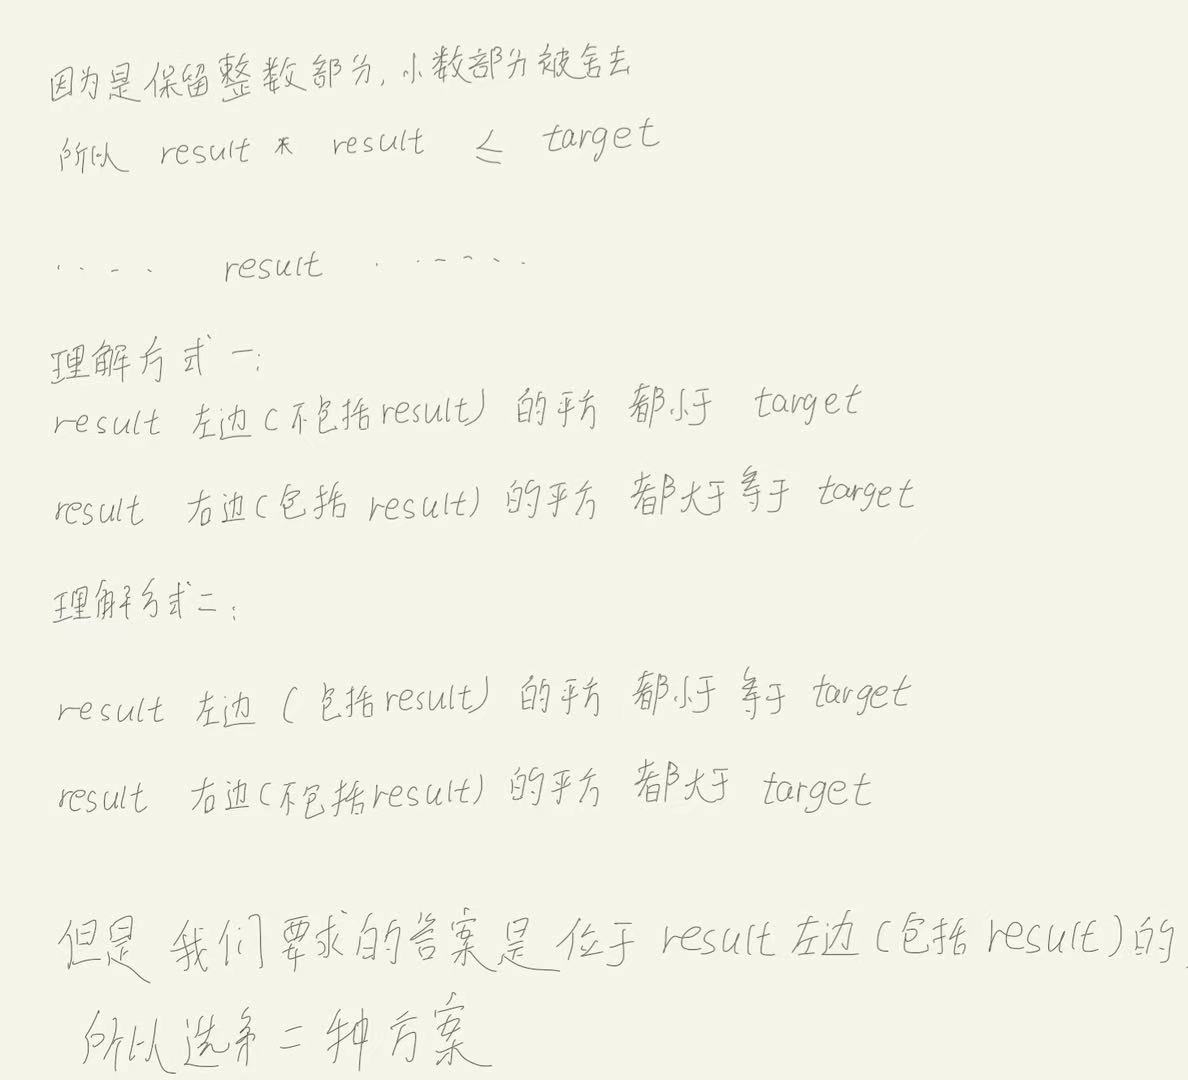 因为是保留整数部分, 小数部分被舍去
所以 result * result ≤ target
..... result .......
理解方式一:
result 左边(不包括result)的平方 都小于 target
result 右边(包括 result)的平方 都大于等于 target
理解方式二:
result 左边 (包括result)的平方 都小于等于 target
result 右边(不包括result)的平方 都大于 target
但是 我们要求的答案是位于 result 左边(包括 result)的
所以选第二种方案